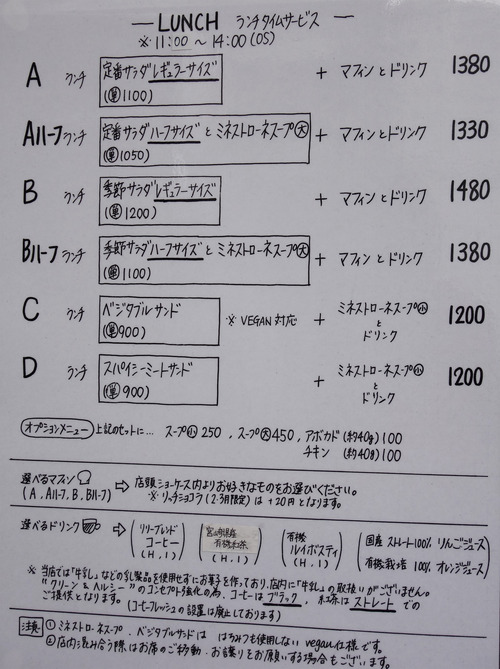 LUNCH ランチタイムサービス
※11:00〜14:00(OS)
A ランチ 定番サラダレギュラーサイズ + マフィンとドリンク 1380
(単1100)
Aハーフランチ 定番サラダハーフサイズとミネストローネスープ大 + マフィンとドリンク 1330
(単1050)
B ランチ 季節サラダレギュラーサイズ + マフィンとドリンク 1480
(単1200)
Bハーフランチ 季節サラダハーフサイズとミネストローネスープ大 + マフィンとドリンク 1380
(単1100)
C ランチ ベジタブルサンド ※VEGAN対応 + ミネストローネスープ小 1200
(単900) と
ドリンク
D ランチ スパイシーミートサンド + ミネストローネスープ小 1200
(単900) と
ドリンク
オプションメニュー 上記のセットに… スープ小250, スープ大450, アボカド(約40g)100
チキン (約40g)100
選べるマフィン ⇨ 店頭ショーケース内よりお好きなものをお選びください。
(A, Aハーフ, B, Bハーフ) ※リッチショコラ(2.3月限定)は+20円となります。
選べるドリンク ⇨ (リリーブレンド コーヒー (H, I)) (宮崎県産 有機紅茶 (H, I)) (有機 ルイボスティ (H, I)) (国産 ストレート100% りんごジュース
有機栽培 100% オレンジジュース)
※当店では"牛乳"などの乳製品を使用せずにお菓子を作っており、店内に"牛乳"の取扱いがございません。
"クリーン&ヘルシー"のコンセプト強化の為、コーヒーはブラック、紅茶はストレートでの
ご提供となります。(コーヒーフレッシュの設置は廃止しております)
注意 ①ミネストローネスープ、ベジタブルサンドは はちみつも使用しないvegan仕様です。
②店内混み合う際はお席のご移動・お譲りをお願いする場合もございます。